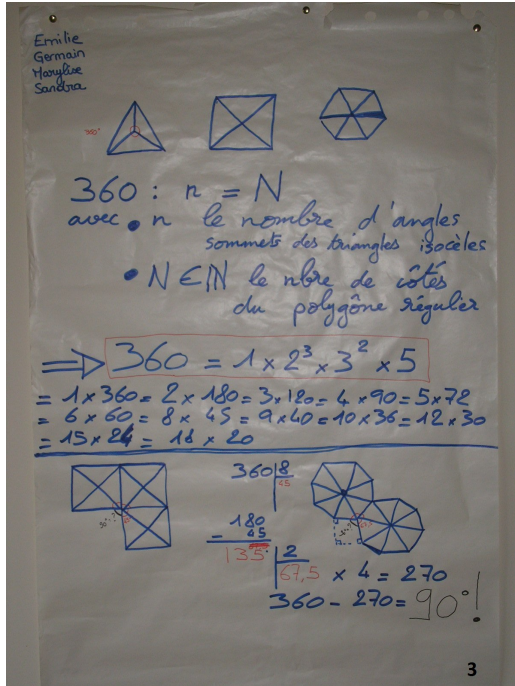 Emilie
Germain
Marylise
Sandra
360°
360 : n = N
avec • n le nombre d'angles
sommets des triangles isocèles
• N ∈ ℕ le nbre de côtés
du polygône réguler
⇒ 360 = 1 × 2³ × 3² × 5
= 1 × 360 = 2 × 180 = 3 × 120 = 4 × 90 = 5 × 72
= 6 × 60 = 8 × 45 = 9 × 40 = 10 × 36 = 12 × 30
= 15 × 24 = 18 × 20
360 8
45
180
- 45
135 2
67,5 × 4 = 270
360 - 270 = 90°!
3